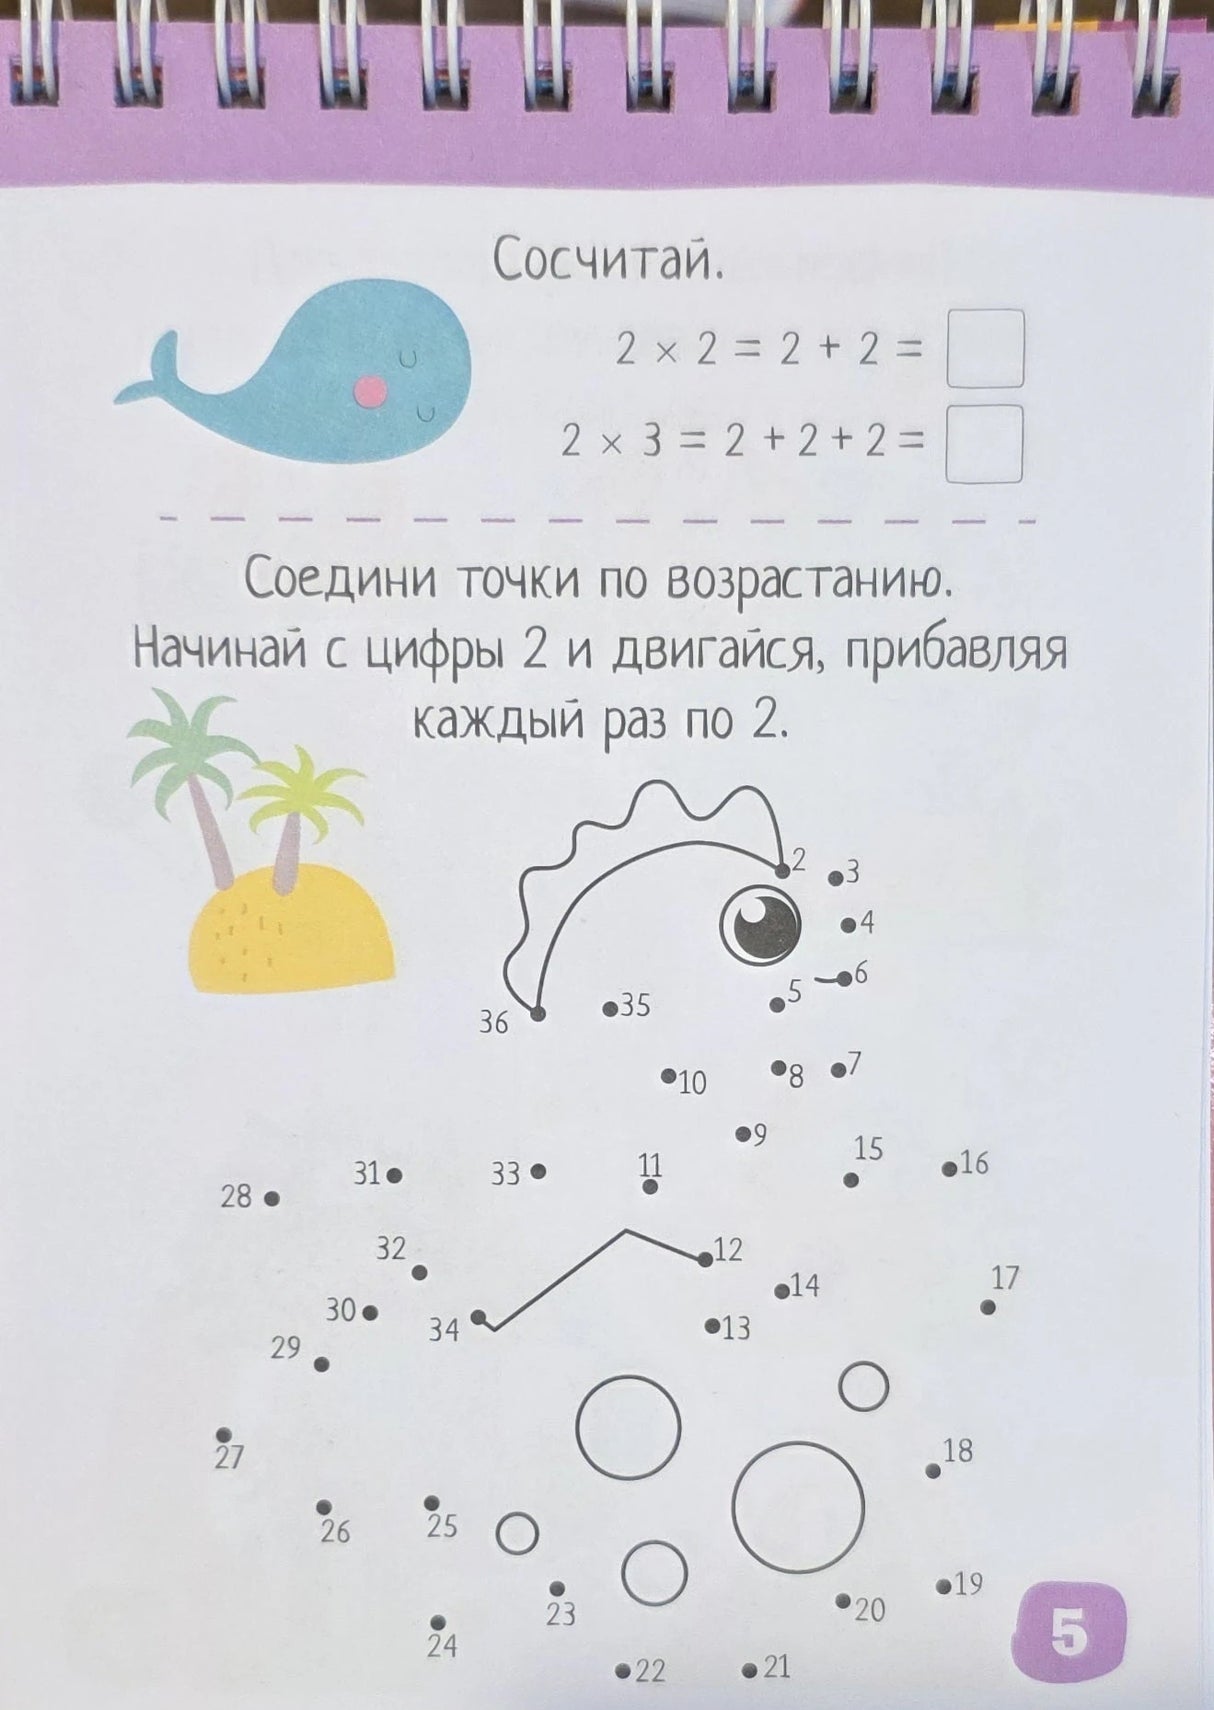 Сосчитай.
2 × 2 = 2 + 2 =
2 × 3 = 2 + 2 + 2 =
Соедини точки по возрастанию.
Начинай с цифры 2 и двигайся, прибавляя
каждый раз по 2.
2
3
4
6
5
35
36
7
8
10
9
15
16
11
33
31
28
32
12
14
17
30
34
13
29
18
27
25
26
19
20
23
24
22
21
5